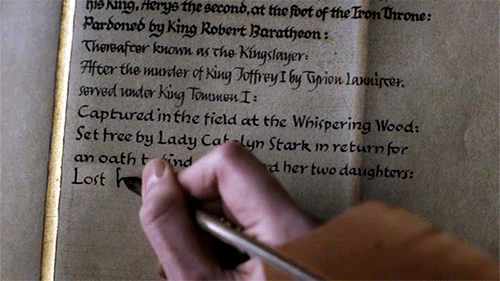 his King, Aerys the second, at the foot of the Iron Throne:
Pardoned by King Robert Baratheon:
Thereafter known as the Kingslayer:
After the murder of King Joffrey I by Tyrion Lannister,
served under King Tommen I:
Captured in the field at the Whispering Wood:
Set free by Lady Catelyn Stark in return for
an oath her two daughters:
Lost